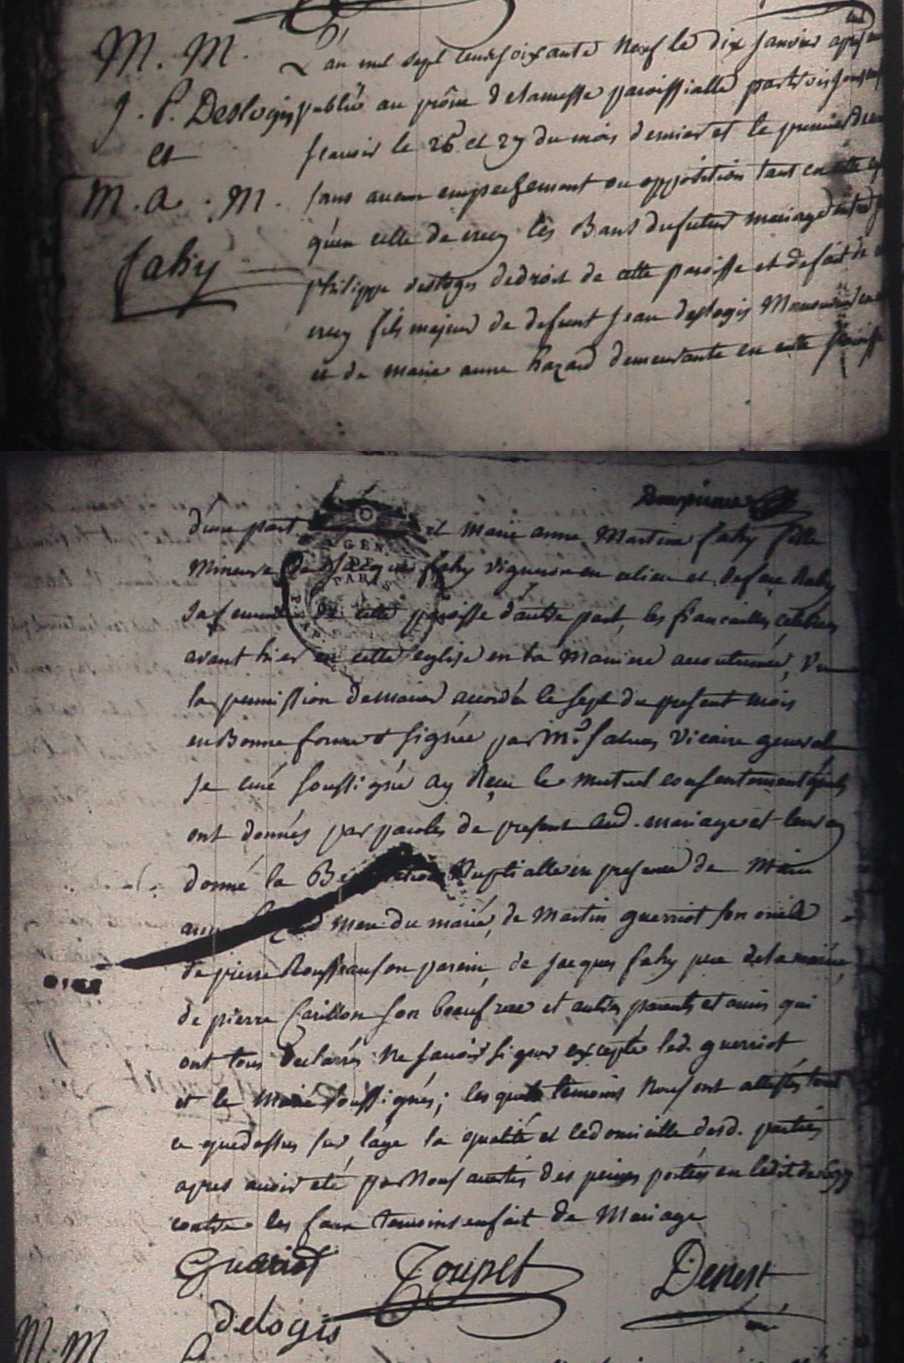 M. M.
J. P. Deslogis
et
M. a. M.
fahy
L'an mil sept cent soixante neuf le dix janvier apres
publié au prône de la messe paroissialle par trois
scavoir le 26 et 27 du mois dernier et le premier du
sans aucun empeschement ou opposition tant en cette
qu'en celle de crecy les Bans du futur mariage
philippe deslogis de droit de cette paroisse et de fait de
crecy fils majeur de defunt jean deslogis
et de marie anne hazard demeurante en cette paroisse
d'une part et Marie anne Martine fahy fille
Mineure de Jacques fahy vigneron en ce lieu et de
sa femme de cette paroisse d'autre part, les fiancailles celebrées
avant hier en cette eglise en la Maniere accoutumée, Vu
la permission accordée le sept du present mois
en Bonne forme & signée par Mr. Vicaire general
Je curé soussigné ay Reçu le mutuel consentement qu'ils
ont donnés par paroles de present aud. mariage et leur ay
donné la Benediction Nuptialle en presence de Marie
anne mere du marié, de Martin guerriot son oncle
de pierre Rousseau son parein, de Jacques fahy pere de la mariée,
de pierre Carillon son beaufrere et autres parents et amis qui
ont tous declarés ne scavoir signer excepté led. guerriot
et le Marié soussignés; les quatre temoins Nous ont attestés tout
ce que dessus sur l'age la qualité et le domicille desd. parties
apres avoir eté par Nous avertis des peines portées en l'edit de 1697
contre les faux temoins en fait de Mariage
Gueriot Toupet Denest
delogis curé
M. M.